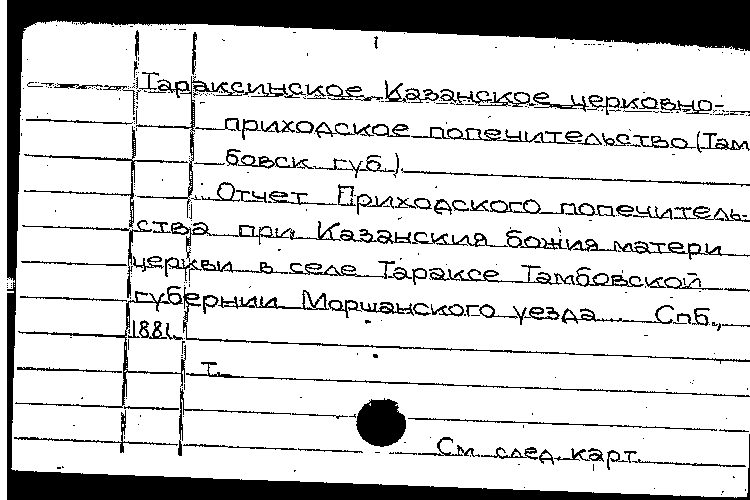 Тараксинское Казанское церковно-
приходское попечительство (Там
бовск. губ.).
Отчет Приходского попечитель-
ства при Казанския божия матери
церкви в селе Тараксе Тамбовской
губернии Моршанского уезда... Спб.,
1881.
Т.
См. след. карт.